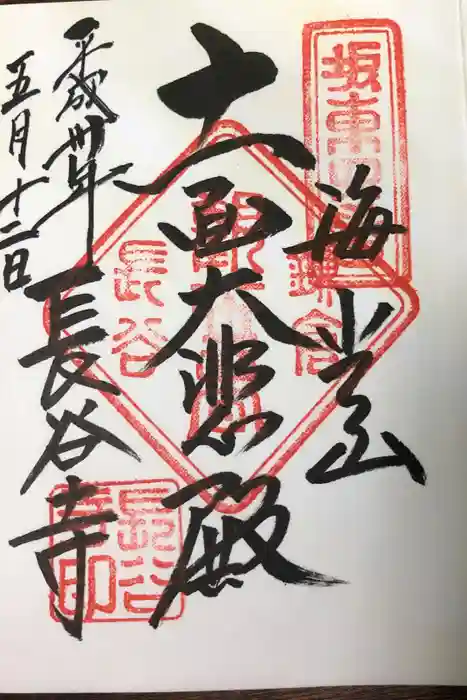 坂東
海光山
十一面大悲殿
鎌倉
長谷
平成卅年
五月十二日
長谷寺
長谷
寺印